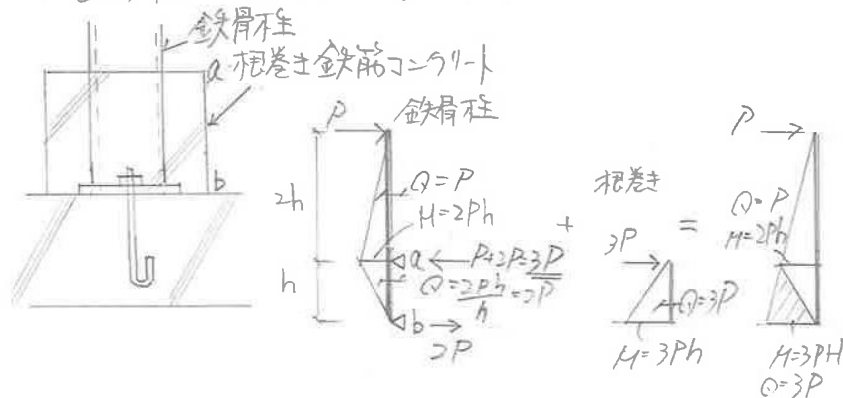 鉄骨柱
a 根巻き鉄筋コンクリート
b
P
鉄骨柱
2h
Q=P
M=2Ph
a
P+2P=3P
h
Q=2Ph/h=2P
b
2P
+
根巻き
3P
Q=3P
M=3Ph
=
P
Q=P
M=2Ph
M=3PH
Q=3P